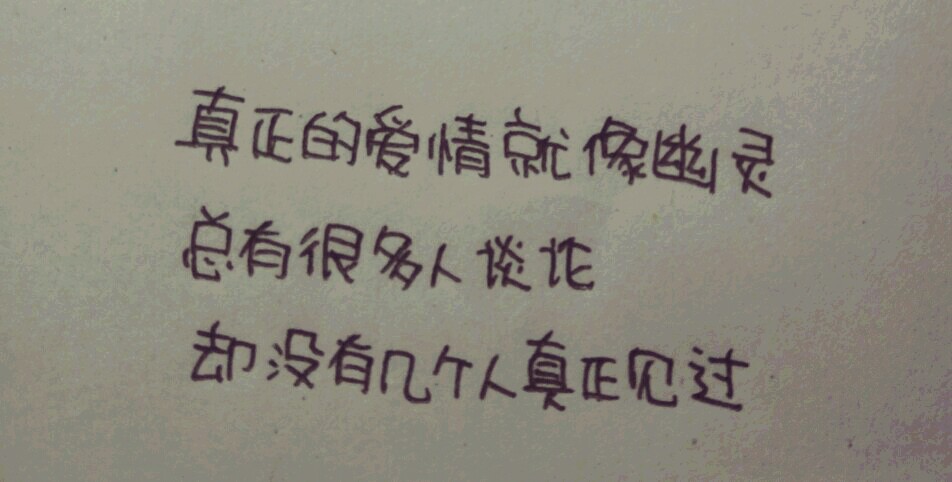 真正的爱情就像幽灵
总有很多人谈论
却没有几个人真正见过